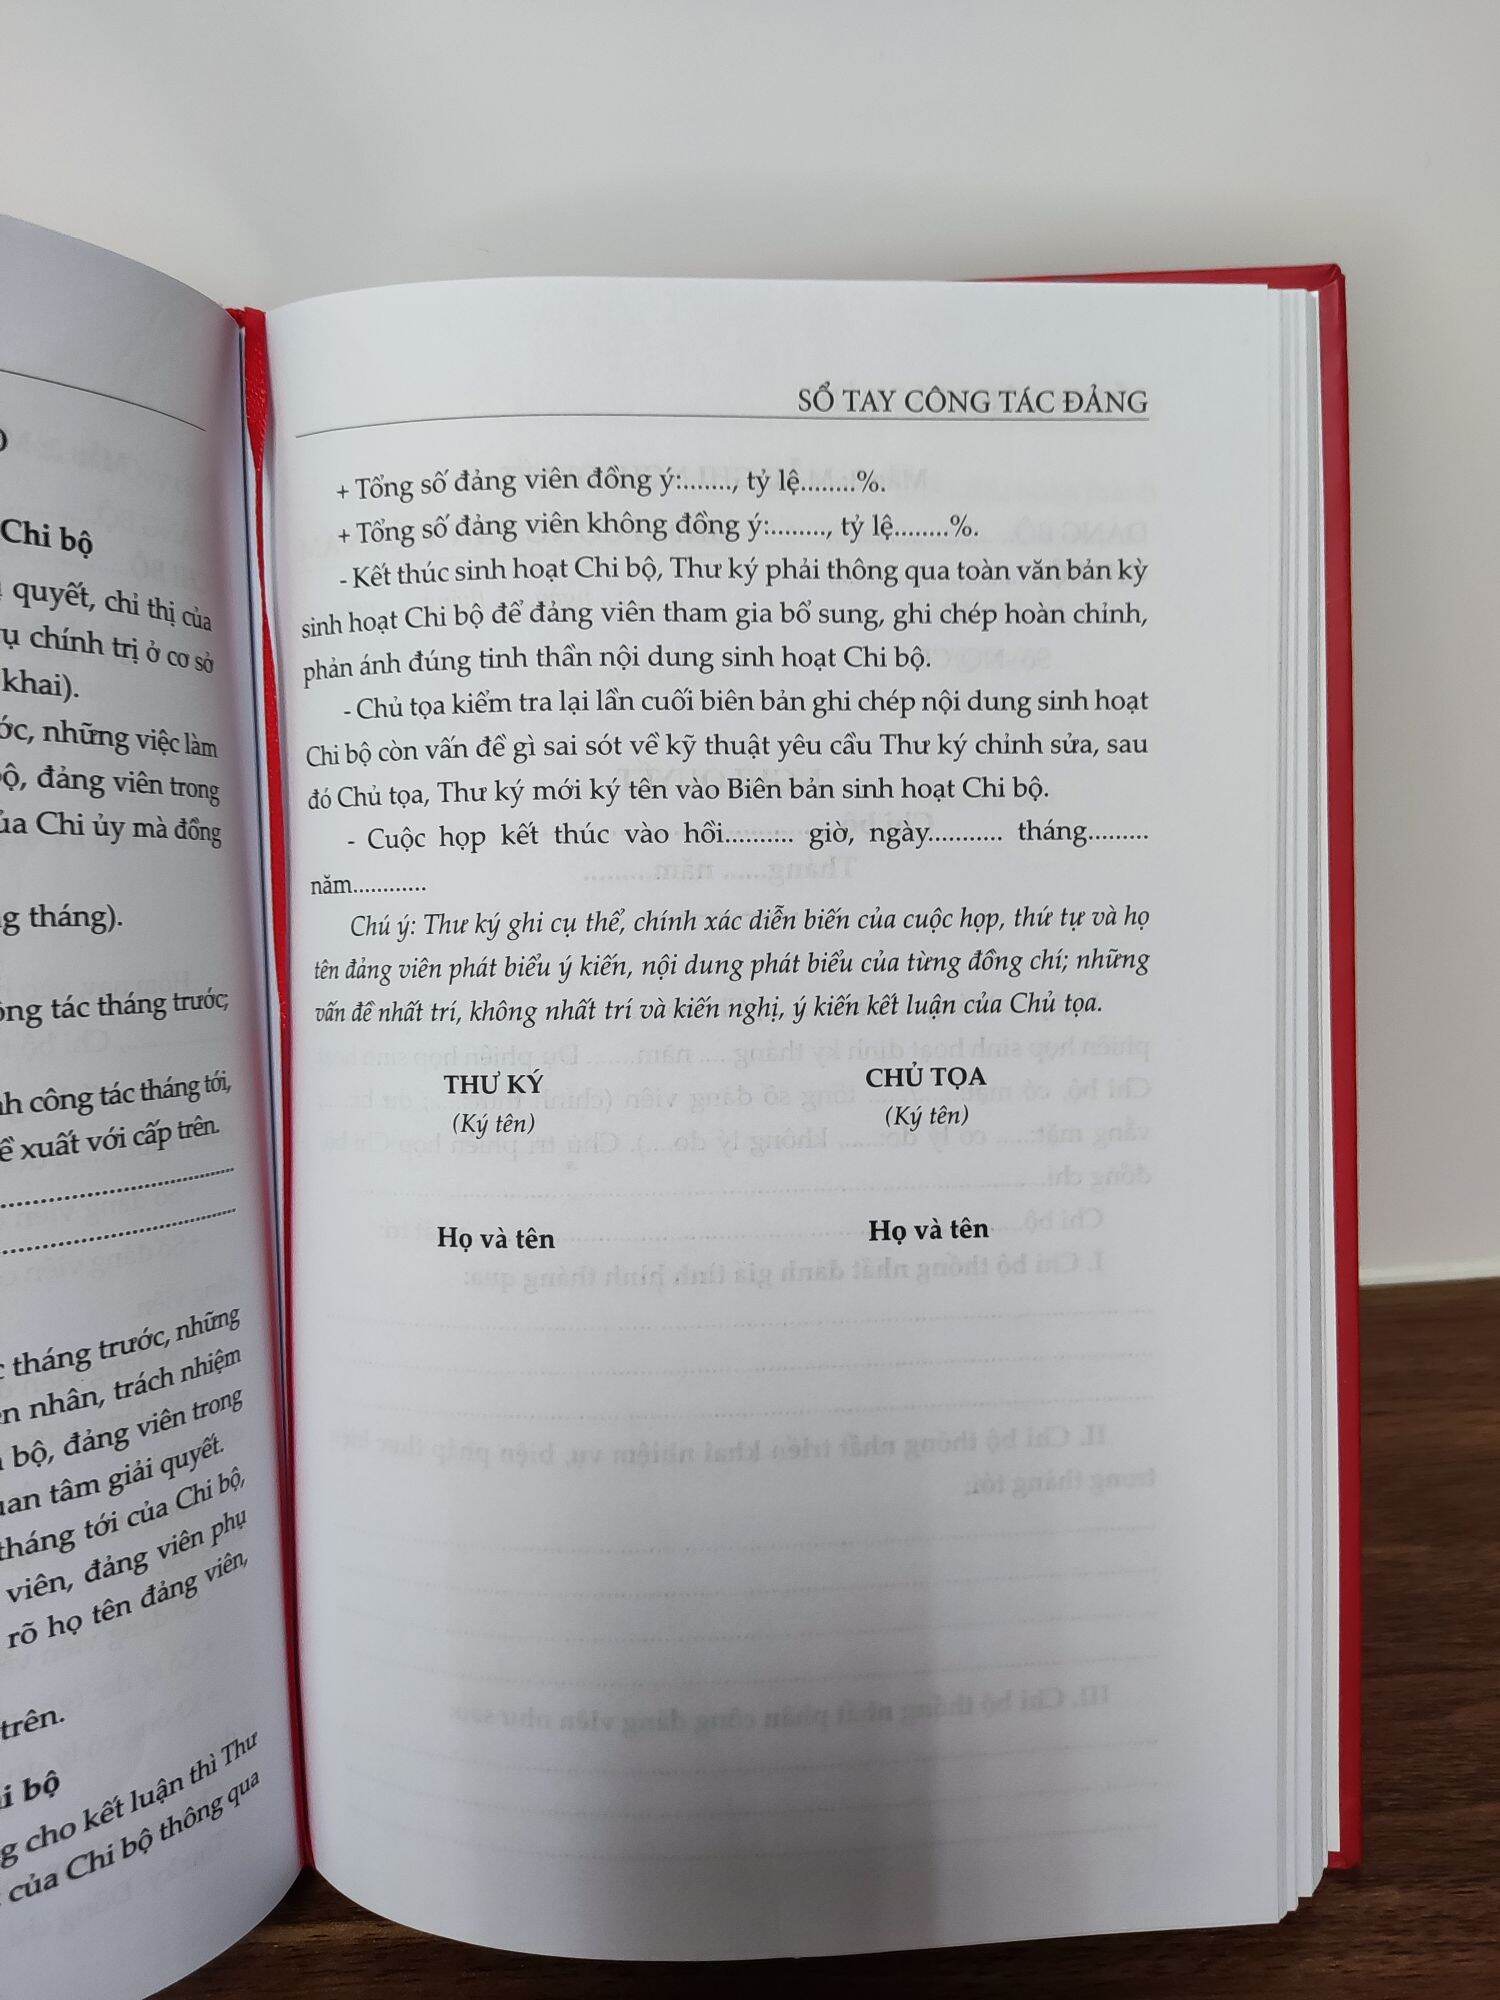 Chi bộ
quyết, chỉ thị của
chính trị ở cơ sở
khai).
những việc làm
đảng viên trong
của Chi ủy mà đồng
tháng).
tác tháng trước;
công tác tháng tới,
xuất với cấp trên.
tháng trước, những
nhân, trách nhiệm
bộ, đảng viên trong
tâm giải quyết.
tháng tới của Chi bộ,
viên, đảng viên phụ
rõ họ tên đảng viên,
trên.
bộ
cho kết luận thì Thư
của Chi bộ thông qua
SỔ TAY CÔNG TÁC ĐẢNG
+ Tổng số đảng viên đồng ý:......., tỷ lệ........%.
+ Tổng số đảng viên không đồng ý:........, tỷ lệ........%.
- Kết thúc sinh hoạt Chi bộ, Thư ký phải thông qua toàn văn bản kỳ
sinh hoạt Chi bộ để đảng viên tham gia bổ sung, ghi chép hoàn chỉnh,
phản ánh đúng tinh thần nội dung sinh hoạt Chi bộ.
- Chủ tọa kiểm tra lại lần cuối biên bản ghi chép nội dung sinh hoạt
Chi bộ còn vấn đề gì sai sót về kỹ thuật yêu cầu Thư ký chỉnh sửa, sau
đó Chủ tọa, Thư ký mới ký tên vào Biên bản sinh hoạt Chi bộ.
- Cuộc họp kết thúc vào hồi.......... giờ, ngày........... tháng.........
năm............
Chú ý: Thư ký ghi cụ thể, chính xác diễn biến của cuộc họp, thứ tự và họ
tên đảng viên phát biểu ý kiến, nội dung phát biểu của từng đồng chí; những
vấn đề nhất trí, không nhất trí và kiến nghị, ý kiến kết luận của Chủ tọa.
THƯ KÝ CHỦ TỌA
(Ký tên) (Ký tên)
Họ và tên Họ và tên